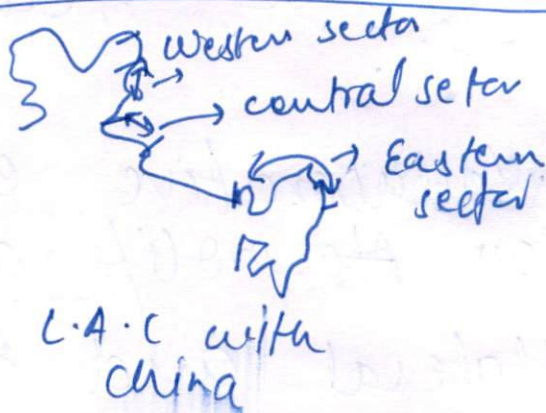 Western sector
central setor
Eastern
sector
L.A.C with
China